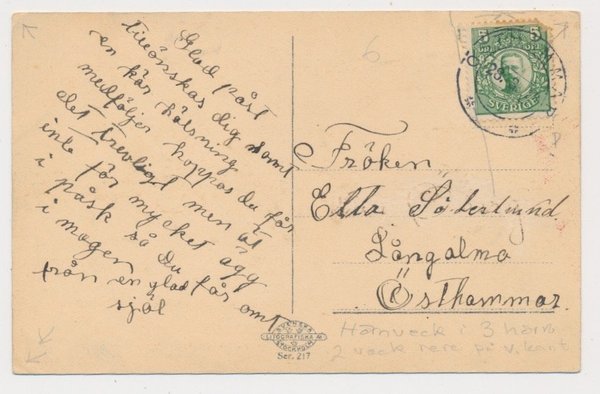 Glad påsk
tillönskas dig samt
en kär hälsning
medföljer hoppas du får
det trevligt men ät
inte för mycket ägg
i påsk så du får omt
i magen
från en glad
själ
5
5
SVERIGE
Fröken
Ella Söderlund
Långalma
Östhammar.
Hörnveck i 3 hörn
2 veck
på v. kant
SVENSKA
LITOGRAFISKA
STOCKHOLM
Ser. 217
6